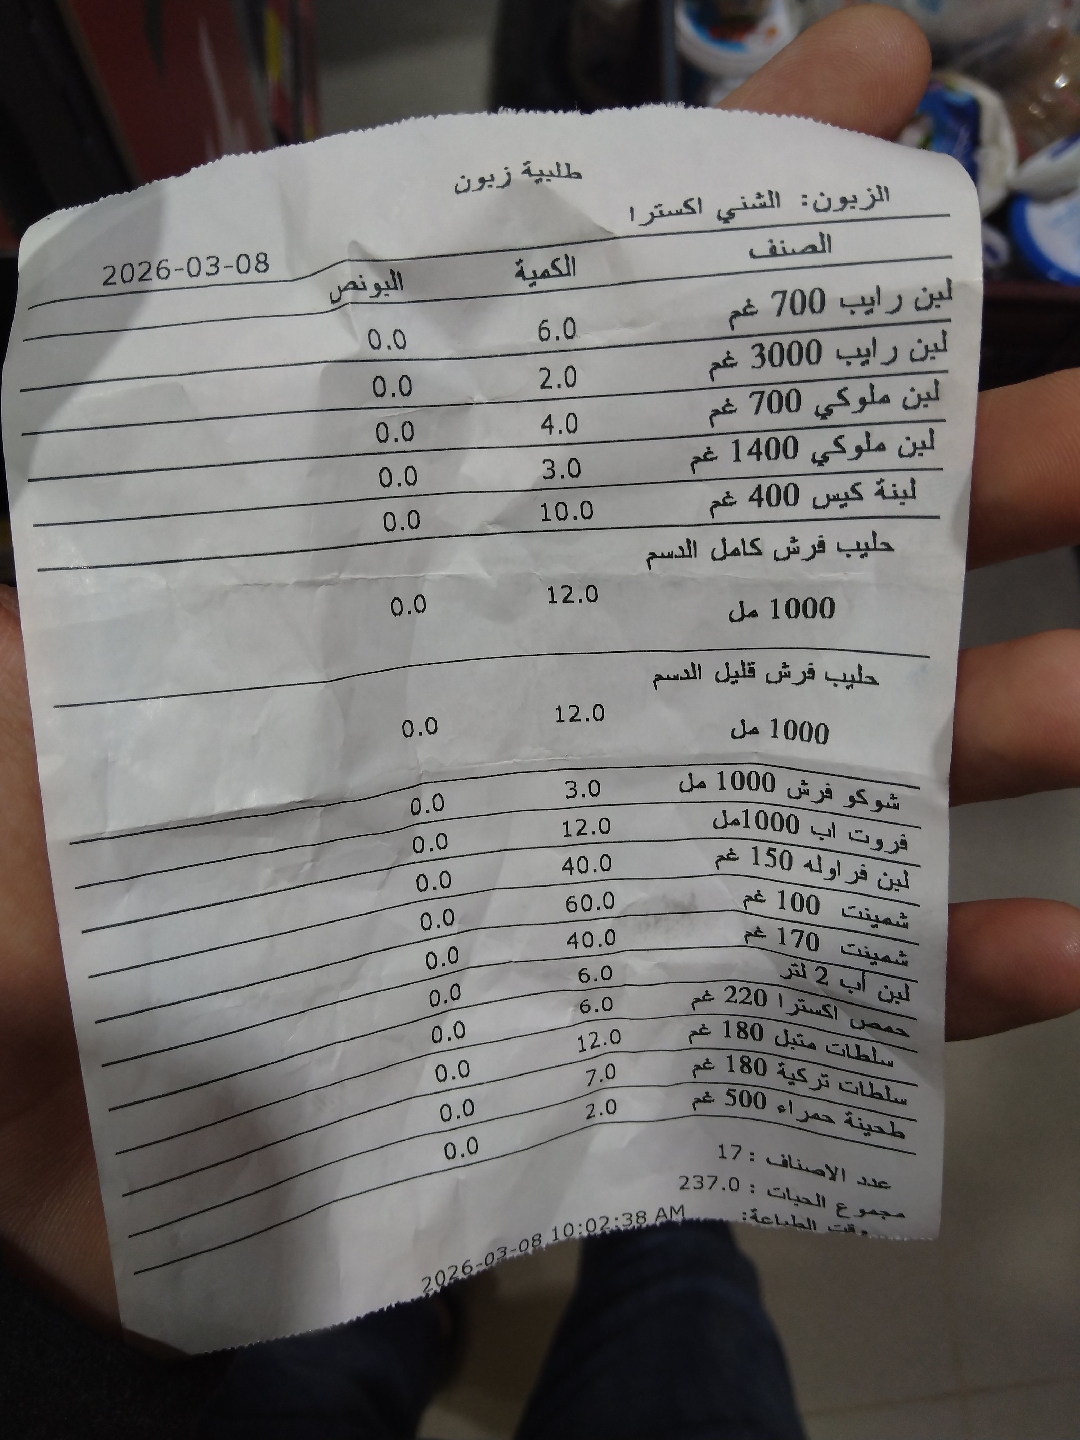 طلبية زبون
الزبون: الشني اكسترا
2026-03-08
الصنف الكمية البونص
لبن رايب 700 غم 6.0 0.0
لبن رايب 3000 غم 2.0 0.0
لبن ملوكي 700 غم 4.0 0.0
لبن ملوكي 1400 غم 3.0 0.0
لبنة كيس 400 غم 10.0 0.0
حليب فرش كامل الدسم
1000 مل 12.0 0.0
حليب فرش قليل الدسم
1000 مل 12.0 0.0
شوكو فرش 1000 مل 3.0 0.0
فروت اب 1000مل 12.0 0.0
لبن فراوله 150 غم 40.0 0.0
شمينت 100 غم 60.0 0.0
شمينت 170 غم 40.0 0.0
لبن أب 2 لتر 6.0 0.0
حمص اكسترا 220 غم 6.0 0.0
سلطات متبل 180 غم 12.0 0.0
سلطات تركية 180 غم 7.0 0.0
طحينة حمراء 500 غم 2.0 0.0
عدد الاصناف : 17
مجموع الحبات : 237.0
وقت الطباعة: 2026-03-08 10:02:38 AM